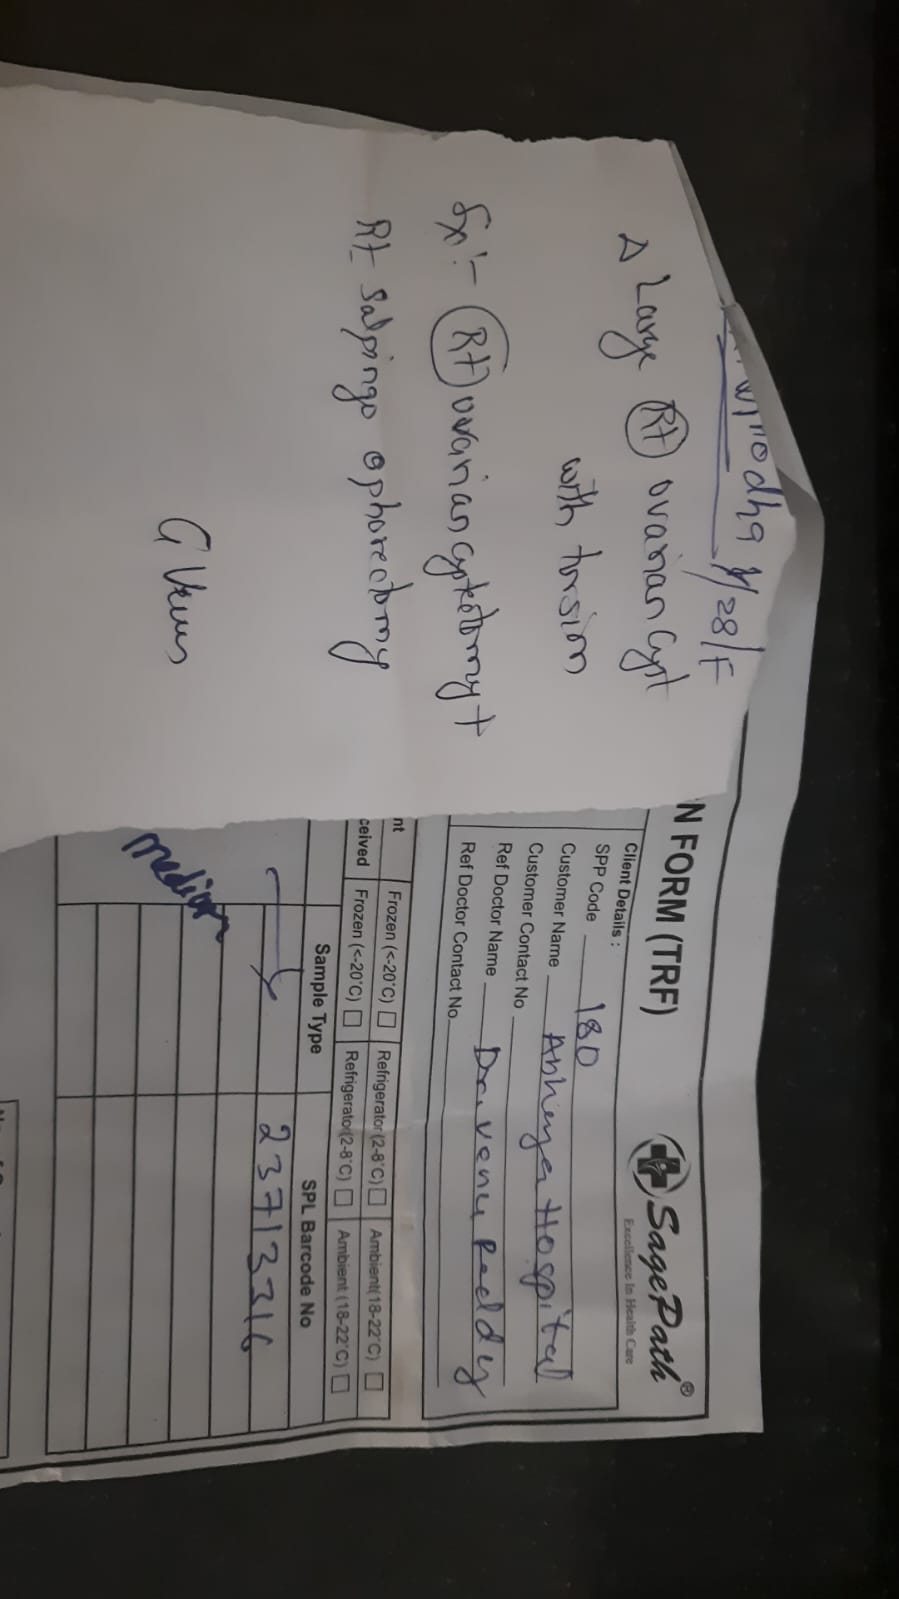 28/F
Δ Large Rt ovarian Cyst
with torsion
Sx:- Rt ovarian Cystectomy +
Rt Salpingo ophorectomy
G Venu
N FORM (TRF)
SagePath®
Excellence In Health Care
Client Details :
SPP Code 180
Customer Name Abhieya Hospital
Customer Contact No
Ref Doctor Name Dr. venu Reddy
Ref Doctor Contact No
nt Frozen (<-20°C) Refrigerator (2-8°C) Ambient(18-22°C)
ceived Frozen (<-20°C) Refrigerator(2-8°C) Ambient (18-22°C)
Sample Type SPL Barcode No
23713316
medium